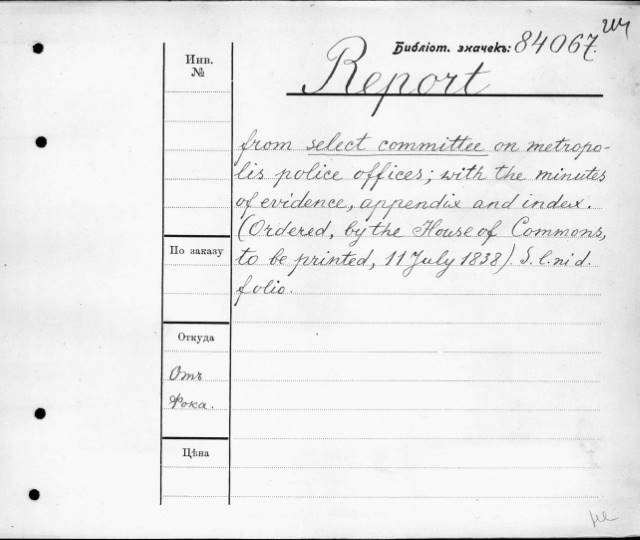 Библіот. значекъ: 84067.
Report
Инв.
№
from select committee on metropo-
lis police offices; with the minutes
of evidence, appendix and index.
(Ordered, by the House of Commons,
to be printed, 11 July 1838). S. l. ni d.
folio.
По заказу
Откуда
Отъ
Фока.
Цѣна